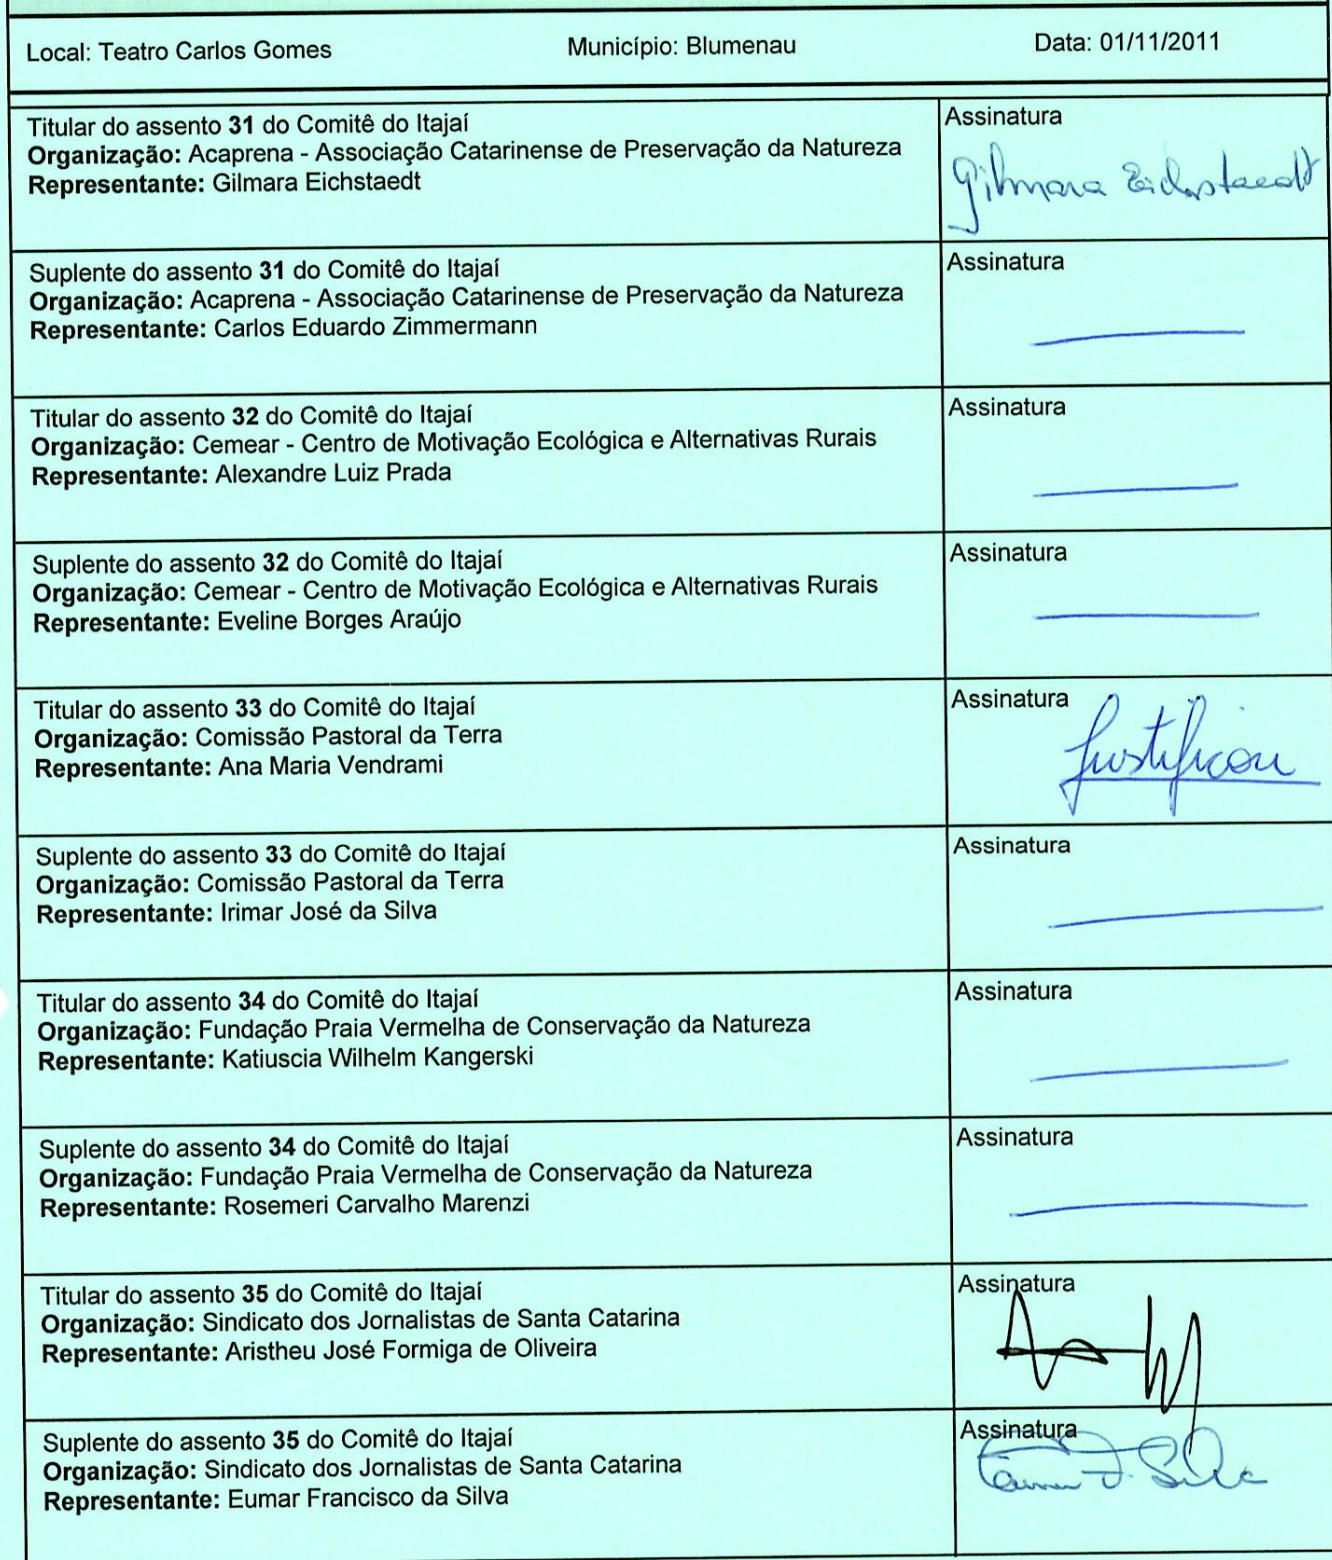 Local: Teatro Carlos Gomes Município: Blumenau Data: 01/11/2011
Titular do assento 31 do Comitê do Itajaí
Organização: Acaprena - Associação Catarinense de Preservação da Natureza
Representante: Gilmara Eichstaedt
Assinatura
Gilmara Eichstaedt
Suplente do assento 31 do Comitê do Itajaí
Organização: Acaprena - Associação Catarinense de Preservação da Natureza
Representante: Carlos Eduardo Zimmermann
Assinatura
Titular do assento 32 do Comitê do Itajaí
Organização: Cemear - Centro de Motivação Ecológica e Alternativas Rurais
Representante: Alexandre Luiz Prada
Assinatura
Suplente do assento 32 do Comitê do Itajaí
Organização: Cemear - Centro de Motivação Ecológica e Alternativas Rurais
Representante: Eveline Borges Araújo
Assinatura
Titular do assento 33 do Comitê do Itajaí
Organização: Comissão Pastoral da Terra
Representante: Ana Maria Vendrami
Assinatura
Justificou
Suplente do assento 33 do Comitê do Itajaí
Organização: Comissão Pastoral da Terra
Representante: Irimar José da Silva
Assinatura
Titular do assento 34 do Comitê do Itajaí
Organização: Fundação Praia Vermelha de Conservação da Natureza
Representante: Katiuscia Wilhelm Kangerski
Assinatura
Suplente do assento 34 do Comitê do Itajaí
Organização: Fundação Praia Vermelha de Conservação da Natureza
Representante: Rosemeri Carvalho Marenzi
Assinatura
Titular do assento 35 do Comitê do Itajaí
Organização: Sindicato dos Jornalistas de Santa Catarina
Representante: Aristheu José Formiga de Oliveira
Assinatura
Suplente do assento 35 do Comitê do Itajaí
Organização: Sindicato dos Jornalistas de Santa Catarina
Representante: Eumar Francisco da Silva
Assinatura